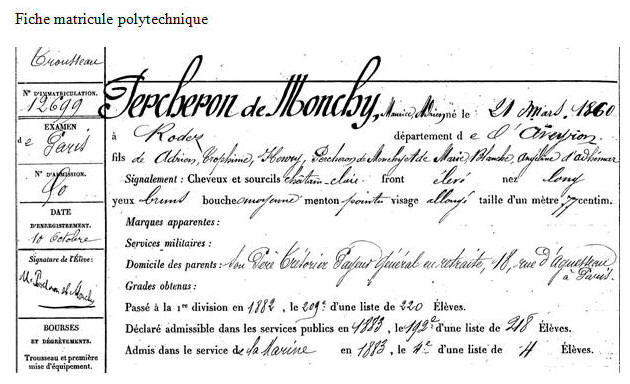 Fiche matricule polytechnique
Trousseau
N° D'IMMATRICULATION.
12699
EXAMEN
de Paris
N° D'ADMISSION.
90
DATE
D'ENREGISTREMENT.
10 octobre
Signature de l'Élève:
M. Percheron de Monchy
BOURSES
ET DÉGRÈVEMENTS.
Trousseau et première
mise d'équipement.
Percheron de Monchy, Maurice, né le 21 mars 1860
à Rodez département de l'Aveyron
fils de Adrien, Trophime, Percheron de Monchy et de Marie, Blanche, d'adhémar
Signalement : Cheveux et sourcils châtain-clair front élevé nez long
yeux bruns bouche moyenne menton pointu visage allongé taille d'un mètre 77 centim.
Marques apparentes :
Services militaires :
Domicile des parents : son Père Trésorier Payeur Général en retraite, 18, rue d'Aguesseau
à Paris
Grades obtenus :
Passé à la 1re division en 1882, le 209e d'une liste de 220 Élèves.
Déclaré admissible dans les services publics en 1883, le 192e d'une liste de 218 Élèves.
Admis dans le service de la Marine en 1883, le 4e d'une liste de 4 Élèves.